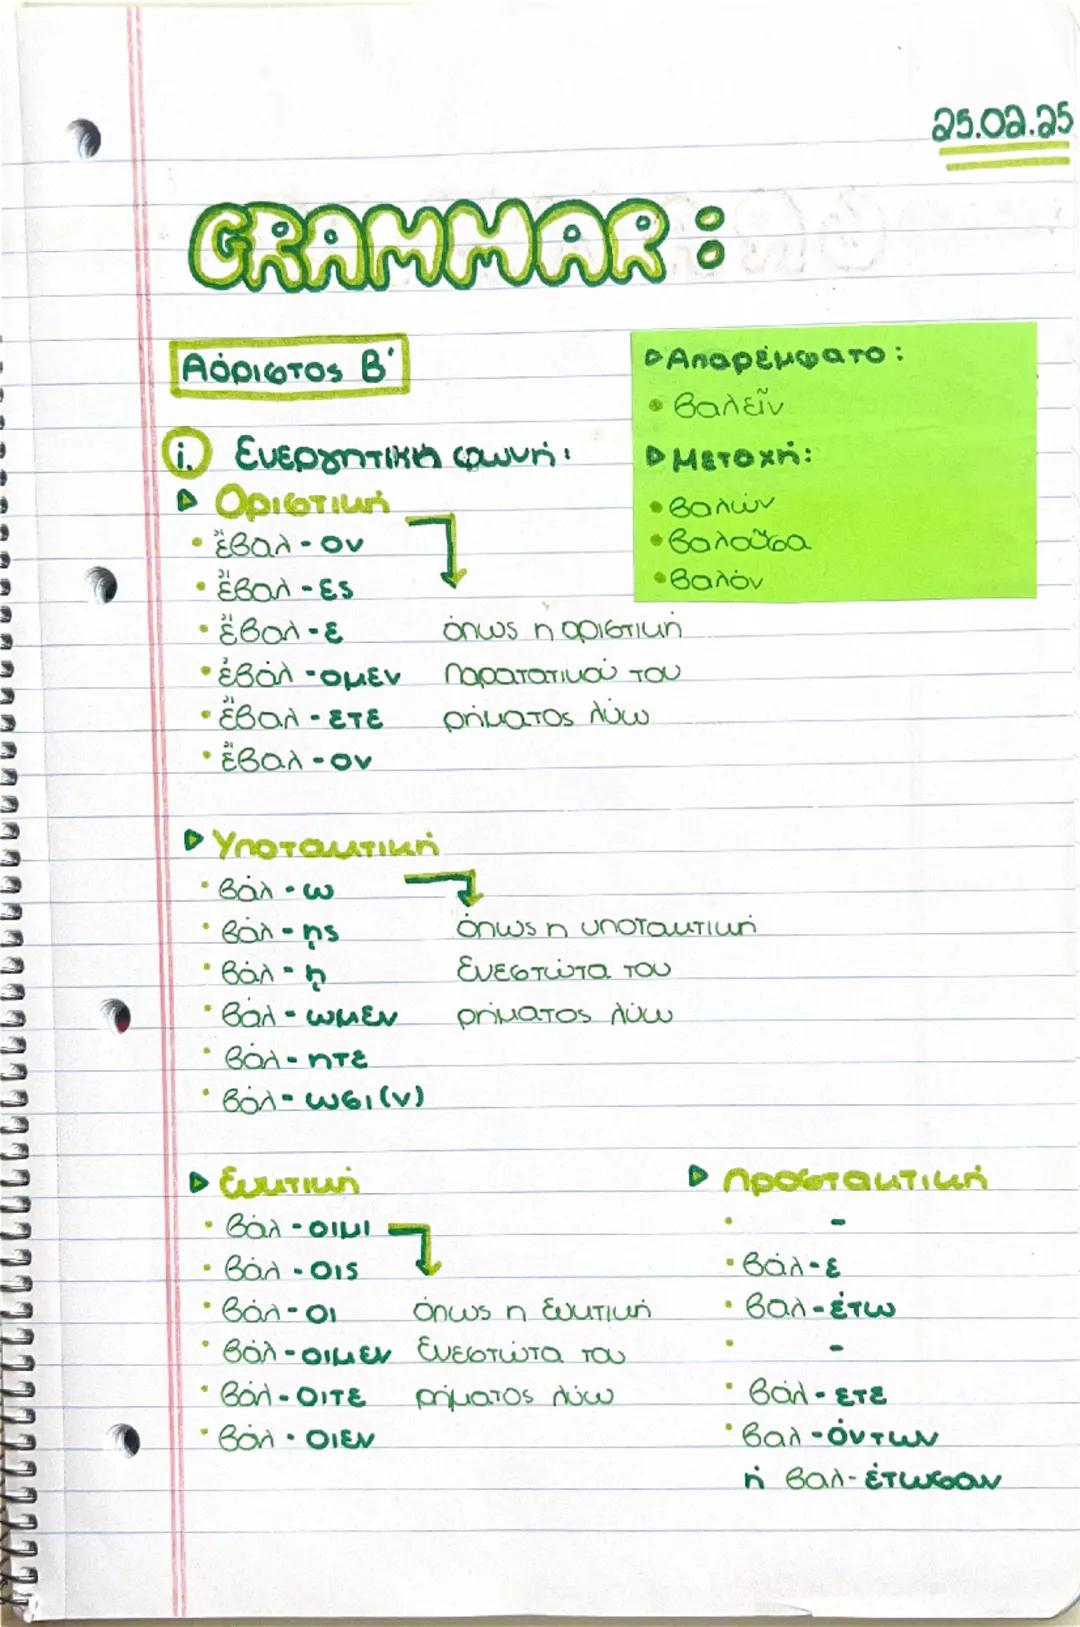 25.02.25
GRAMMAR:
Αόριστος Β'
i. Ενεργητική φωνή:
Οριστική
• ἔβαλ-ον
• ἔβαλ-ες
• ἔβαλ-ε
• ἐβάλ-ομεν
• ἔβαλ-ετε
• ἔβαλ-ον
όπως η οριστική
Παρατατικού του
ρήματος λύω
Απαρέμφατο:
• βαλεῖν
Μετοχή:
• βαλών
• βαλοῦσα
• βαλόν
Υποτακτική
• βάλ-ω
• βάλ-ῃς
• βάλ-ῃ
• βάλ-ωμεν
• βάλ-ητε
• βάλ-ωσι(ν)
όπως η υποτακτική
Ενεστώτα του
ρήματος λύω
Ευκτική
• βάλ-οιμι
• βάλ-οις
• βάλ-οι
• βάλ-οιμεν
• βάλ-οιτε
• βάλ-οιεν
όπως η Ευκτική
Ενεστώτα του
ρήματος λύω
Προστακτική
• -
• βάλ-ε
• βαλ-έτω
• -
• βάλ-ετε
• βαλ-όντων
ή βαλ-έτωσαν